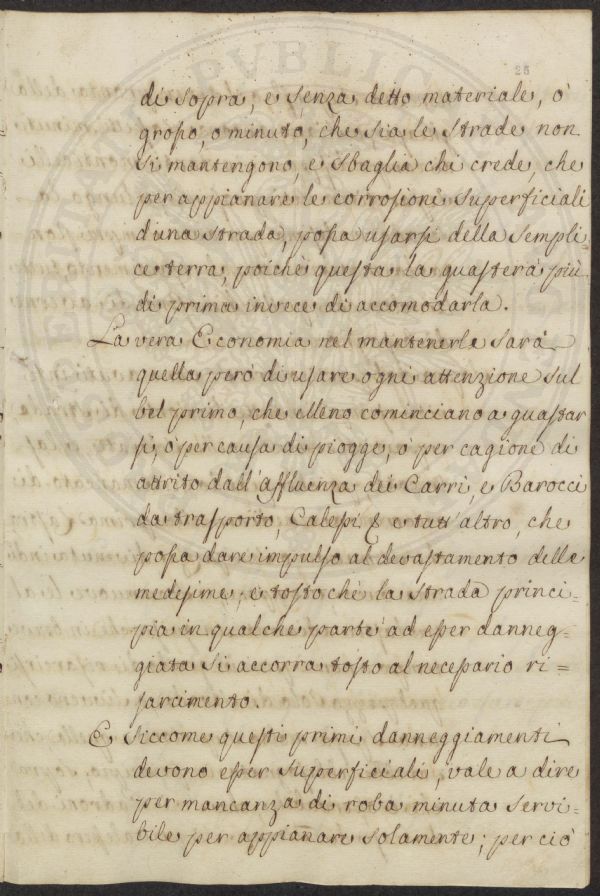 25
di sopra, e senza detto materiale, ó
grosso, o minuto, che sia le strade non
si mantengono, e sbaglia chi crede, che
per appianare le corrosioni superficiali
d'una strada, possa usarsi della sempli=
ce terra, poichè questa la guasterà più
di prima invece di accomodarla.
La vera Economia nel mantenerle sarà
quella però di usare ogni attenzione sul
bel primo, che elleno cominciano a guastar
si, ó per causa di piogge, ó per cagione di
attrito dall'affluenza dei Carri, e Barocci
da trasporto, Calessi & e tutt'altro, che
possa dare impulso al devastamento delle
medesime; e tosto chè la strada princi=
pia in qualche parte ad esser danneg=
giata si accorra tosto al necessario ri=
sarcimento.
E siccome questi primi danneggiamenti
devono esser superficiali, vale a dire
per mancanza di roba minuta servi=
bile per appianare solamente; per ciò